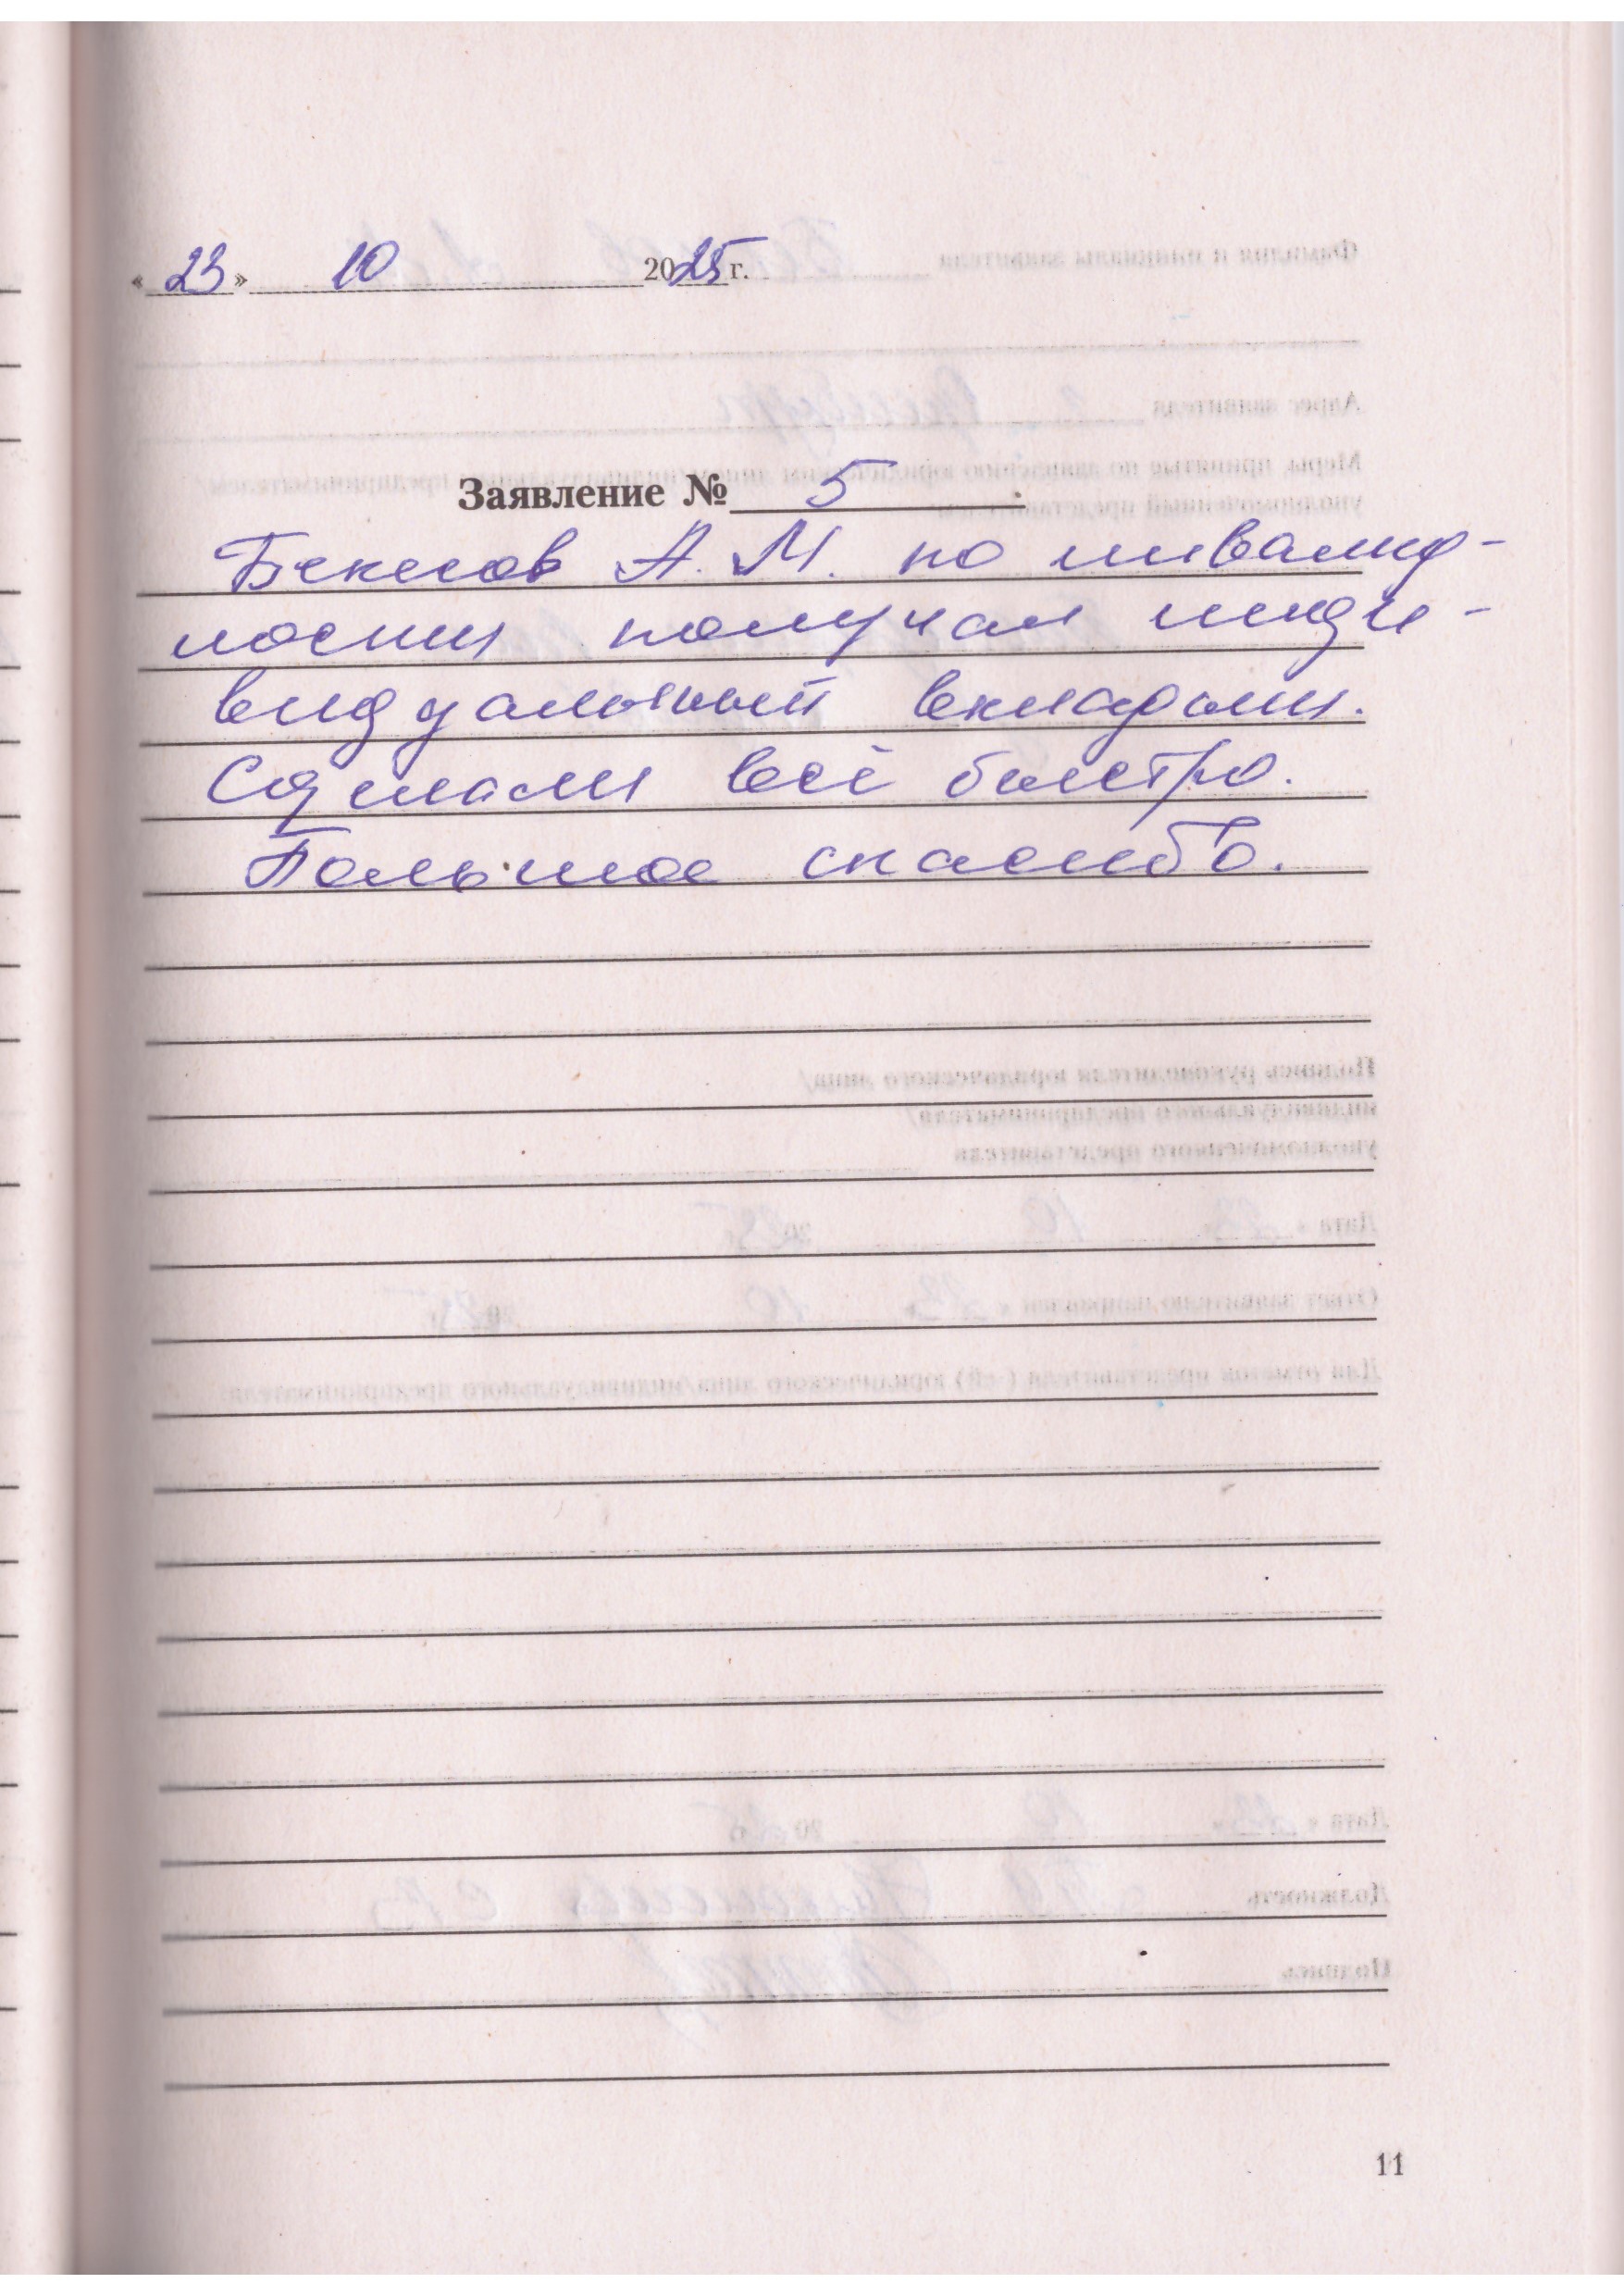 «23» 10 2025 г.
Заявление № 5
Бекесов А. М. по инвалид-
ности получал инди-
видуальный вкладыш.
Сделали всё быстро.
Большое спасибо.
11